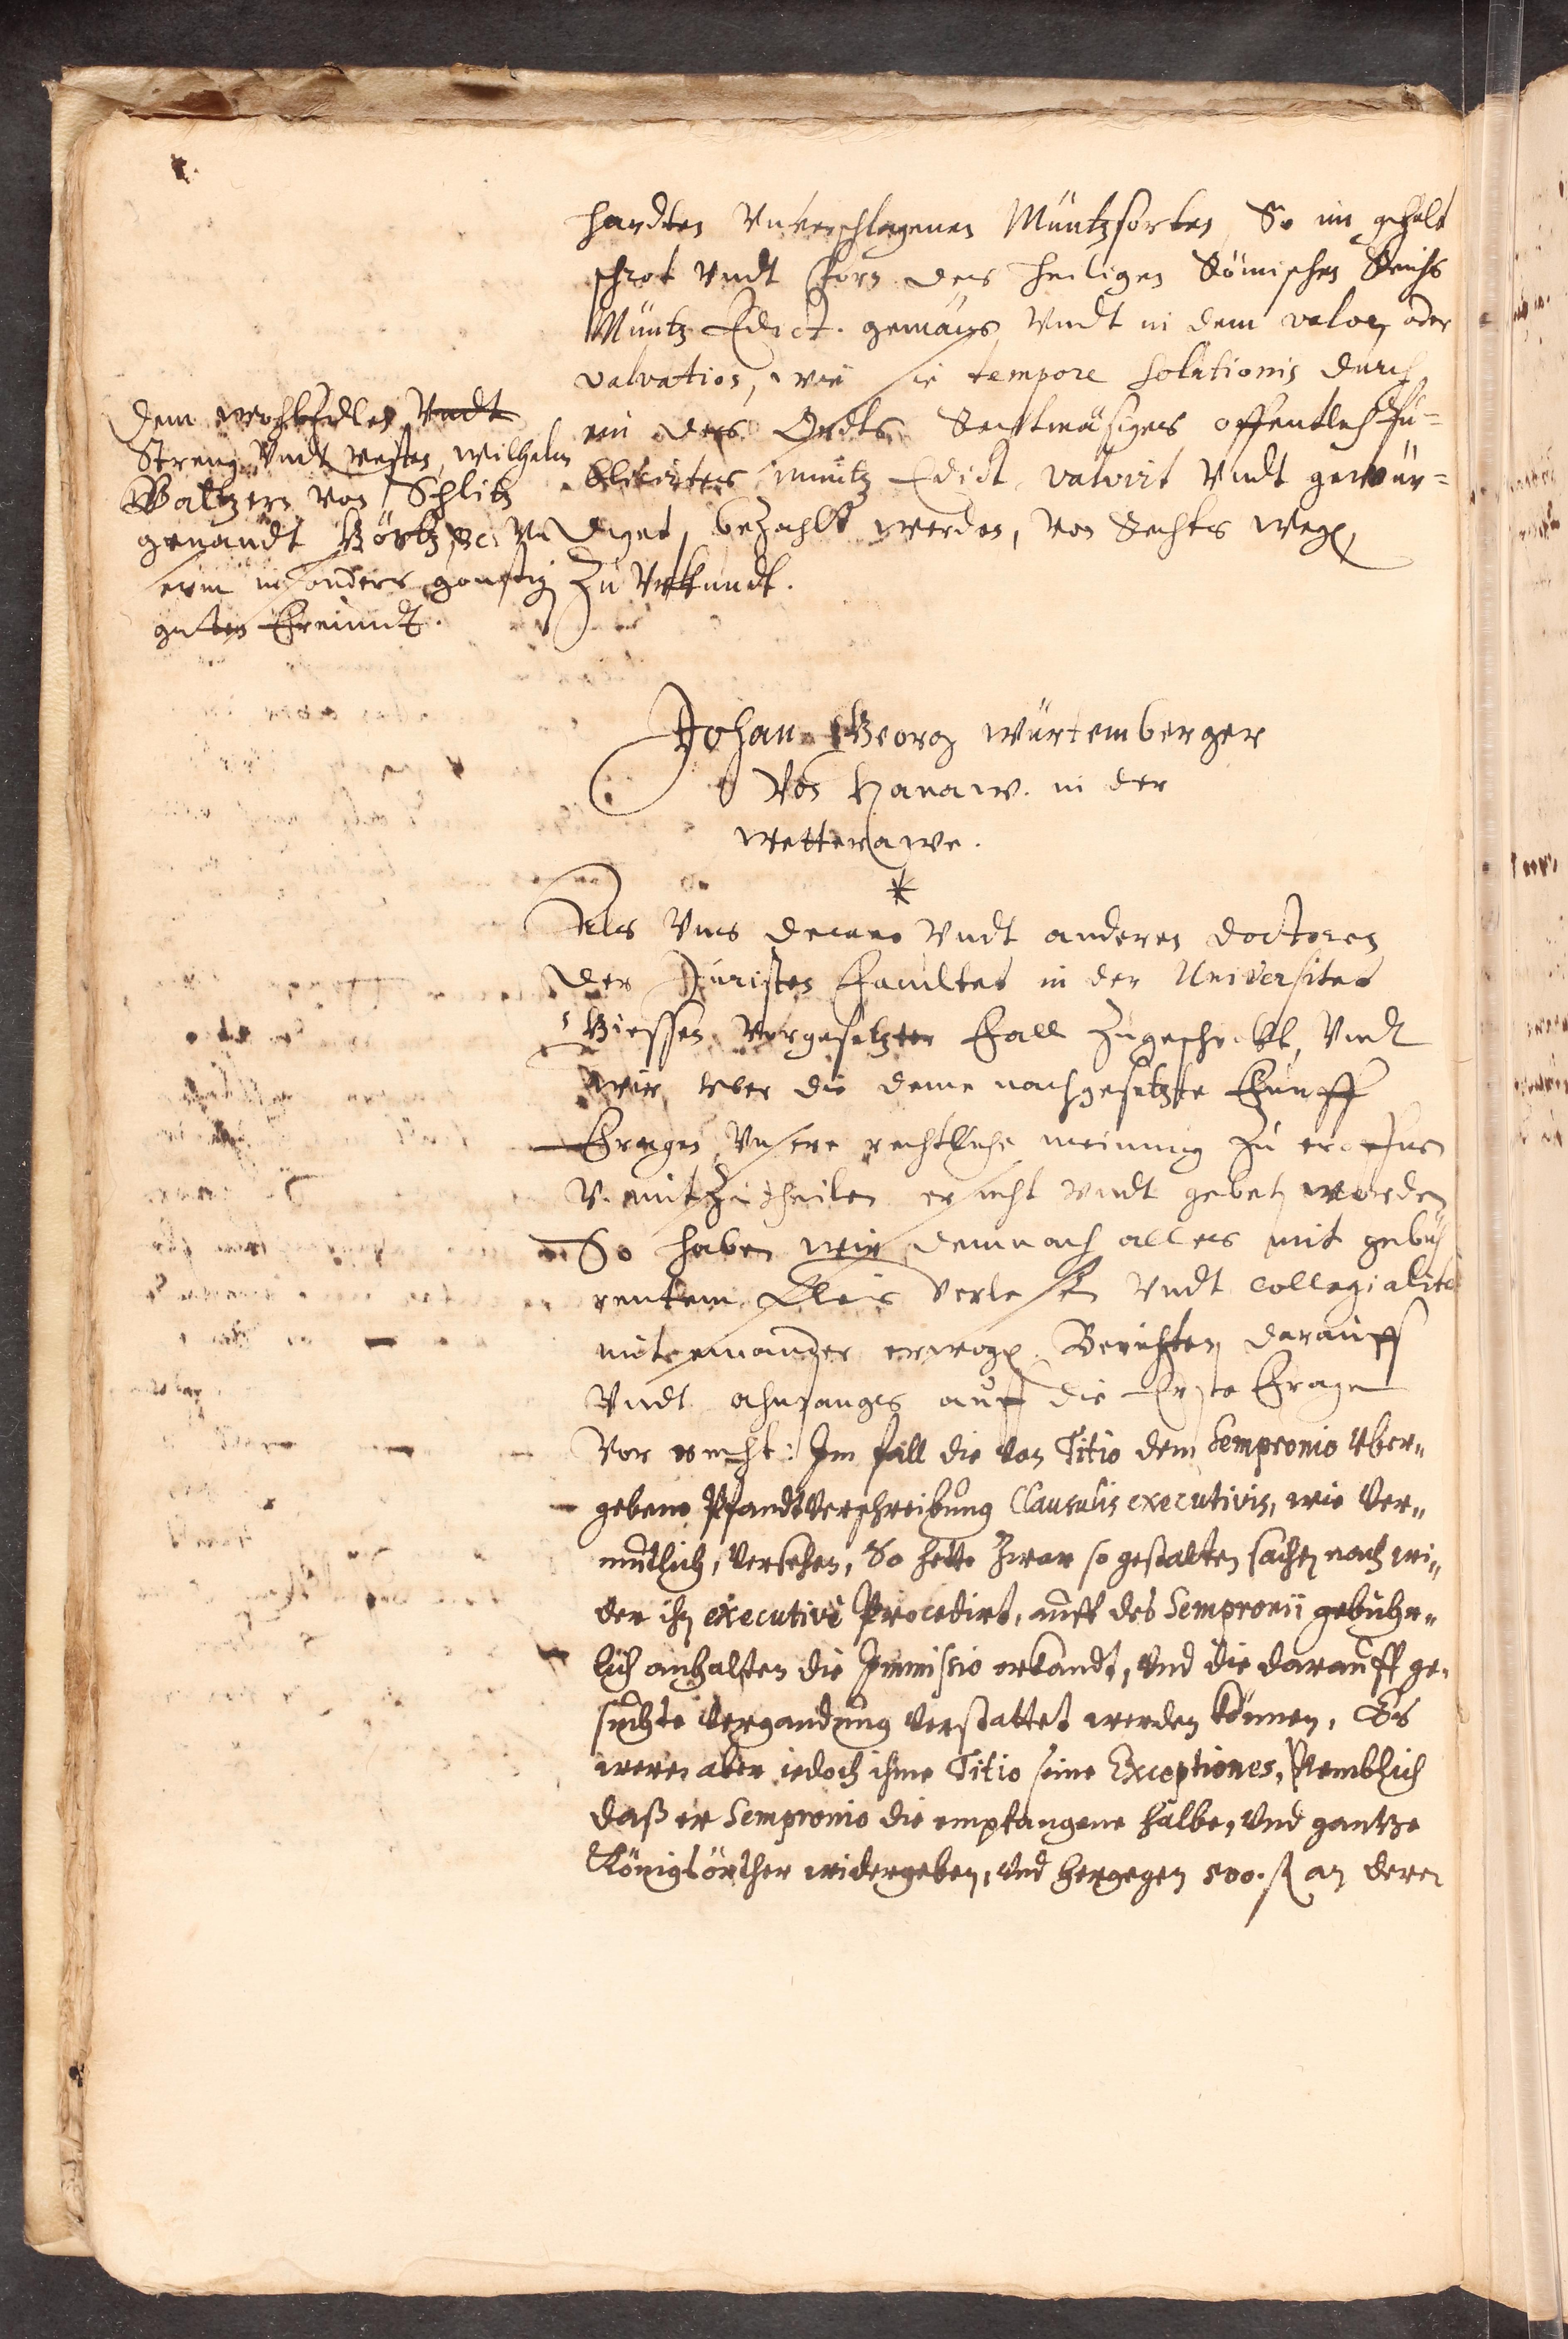 handten Unverschlagenen Müntzsorten, So im gehalt
schrot Undt Korn des heiligen Römischen Reichs
Müntz Edict. gemäß, Undt in dem valor oder
valvation, wie sie tempore solutionis durch
ein des Ordts Rechtmäsiges offentlich Pu-
blicirtes müntz Edict, valvirt Undt gewür-
diget, bezahlt werden, Von Rechts wegen,
Zu Urkundt.
Dem WohlEdlen Undt
Streng Undt Vesten, Wilhelm
Baltzern Von Schlitz
genandt Görtz &c. Un
serm insonders gonstig
guten Freundt.
Johan Georg Würtemberger
Von Hanaw. in der
Wetterawe.
*
Als Uns Decano Undt anderen Doctoren
der Juristen Facultet in der Universitet
Giessen Vorgesetzter Fall Zugeschickt, Undt
wir Uber die deme nachgesetzte Fünff
Fragen, Unsere rechtliche meinung zu eroffnen
U. mitzutheilen ersucht Undt gebeten worden
So haben wir demnach alles mit gebüh
rentem Fleis Verlesen Undt collegialiter
miteinander erwogen. Berichten darauff
Undt ahnfangs auff die Erste Frage
Vor recht: Im fall die von Titio dem Sempronio Uber-
gebene Pfandtverschreibung Clausulis executivis, wie Ver-
mutlich, Versehen, So hette Zwar so gestalten sachen nach wi-
der ihn executivè Procedirt, auff des Sempronii gebühr-
lich anhalten die Immissio erkandt, Und die darauff ge-
suchte Vergandung Verstattet werden können, Es
weren aber iedoch ihme Titio seine Exceptiones, Nemblich
daß er Sempronio die empfangene halbe, Und gantze
Königsörther widergeben, Und hergegen 500. fl an deren